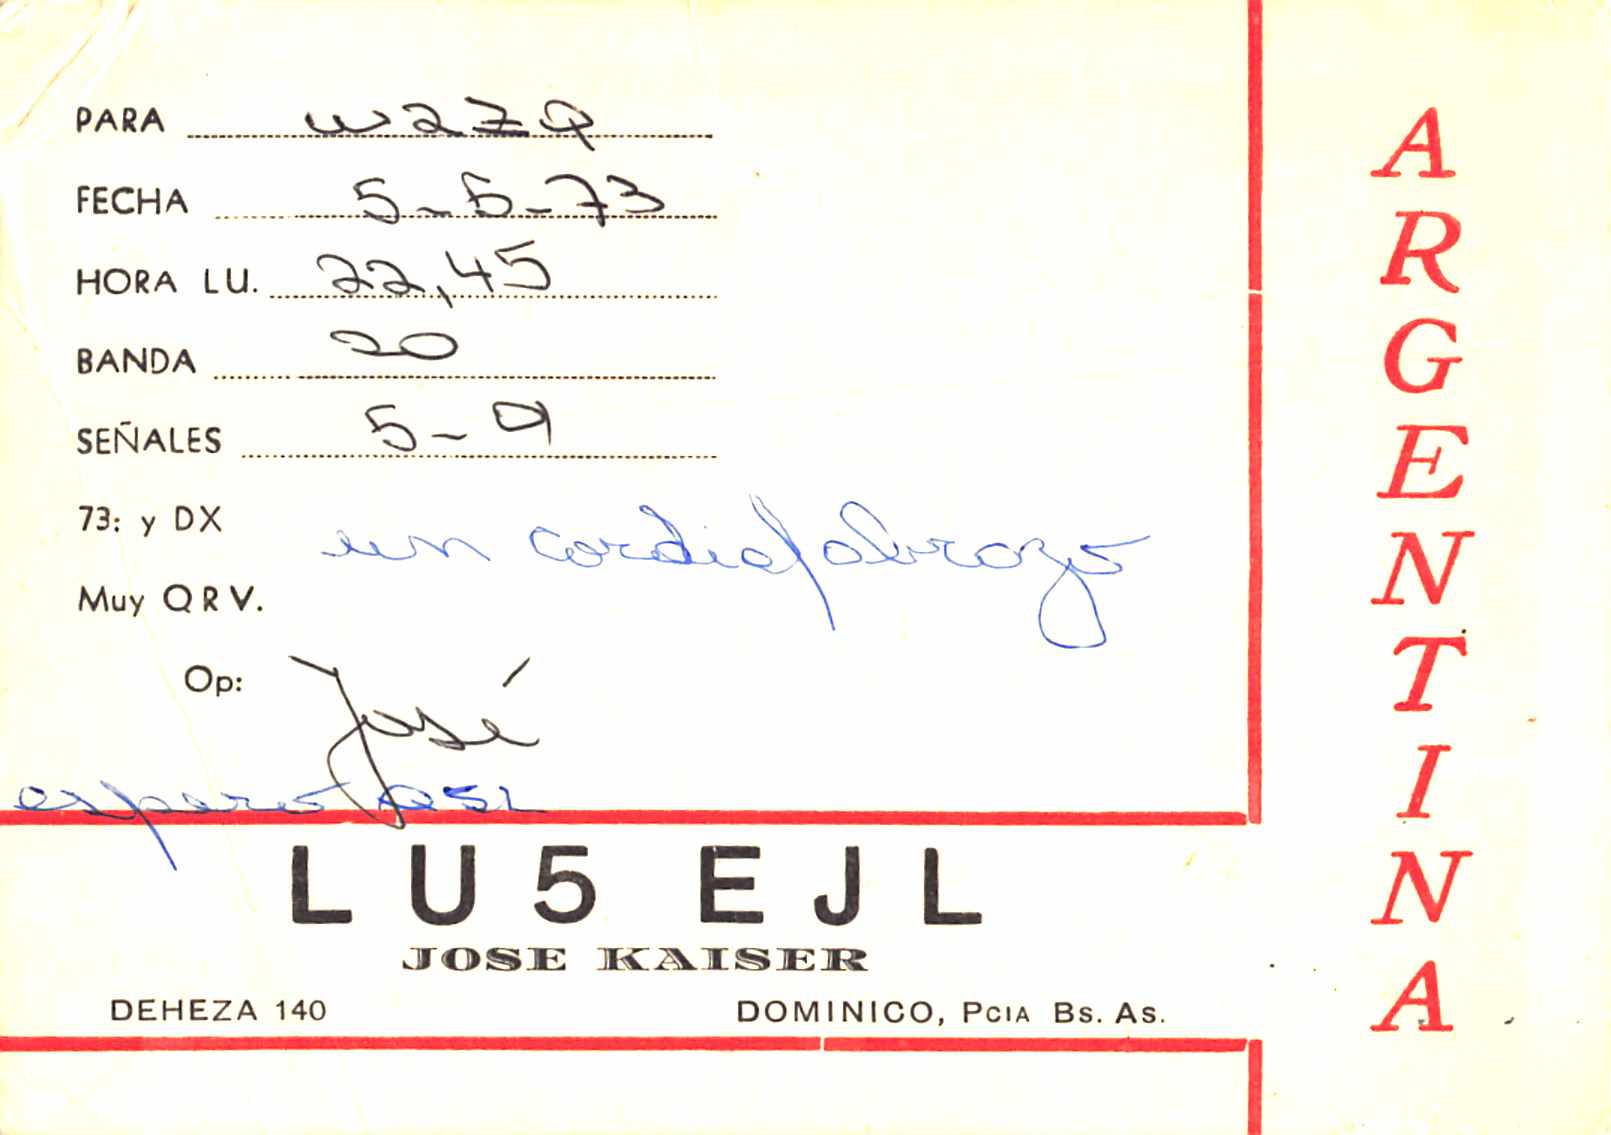 PARA W2ZQ
FECHA 5-5-73
HORA LU. 22,45
BANDA 20
SEÑALES 5-9
73: y DX un cordial abrazo
Muy QRV.
Op: José
espero
LU5 EJL
JOSE KAISER
DEHEZA 140 DOMINICO, Pcia Bs. As.
ARGENTINA